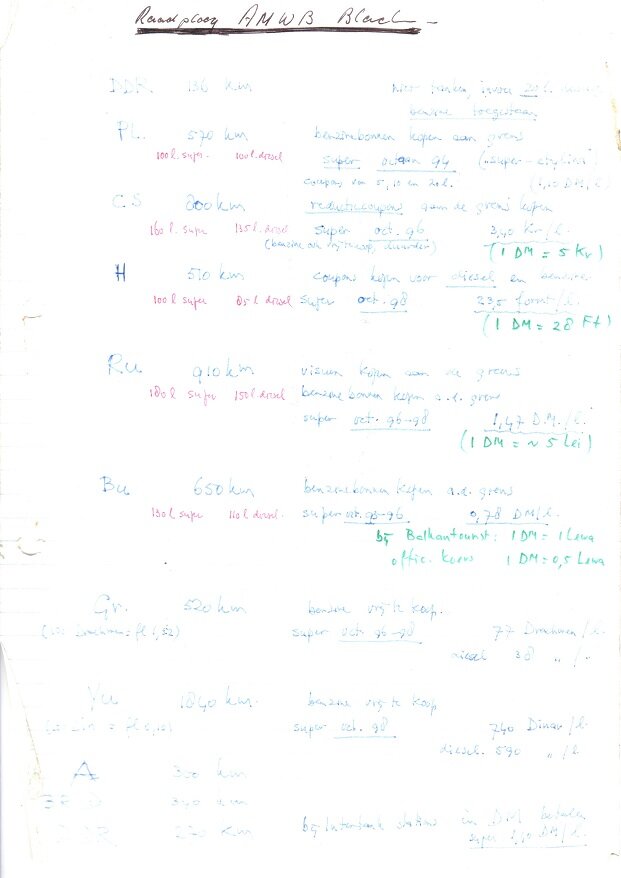 Raadpleeg AMWB Blad
DDR 136 km niet tanken, invoer 20 l.
benzine toegestaan
PL. 570 km benzinebonnen kopen aan grens
100 l. super 100 l. diesel super octaan 94 ("super-etylina")
coupons van 5, 10 en 20 l. (1,10 DM/l)
C.S 800 km reductiecoupons aan de grens kopen
160 l. super 135 l. diesel super oct. 96 3,40 Kr/l.
(benzine ook vrij te koop, duurder) (1 DM = 5 Kr)
H 510 km coupons kopen voor diesel en benzine
100 l super 85 l. diesel super oct. 98 23,5 forint/l.
(1 DM = 28 Ft)
Ru 910 km visum kopen aan de grens
180 l super 150 l. diesel benzine bonnen kopen a.d. grens
super oct. 96-98 1,47 D.M./l.
(1 DM = ~ 5 Lei)
Bu 650 km benzinebonnen kopen a.d. grens
130 l super 110 l. diesel. super oct. 93-96 0,78 DM/l.
bij Balkantourist: 1 DM = 1 Lewa
offic. koers 1 DM = 0,5 Lewa
Gr. 520 km benzine vrij te koop.
super oct. 96-98 77 Drachmen/l.
diesel 38 " / "
Yu 1840 km. benzine vrij te koop
super oct. 98 740 Dinar/l.
diesel. 590 " /l
A 350 km
340 km
270 km bij Intertank stations in DM betalen
super DM/l.